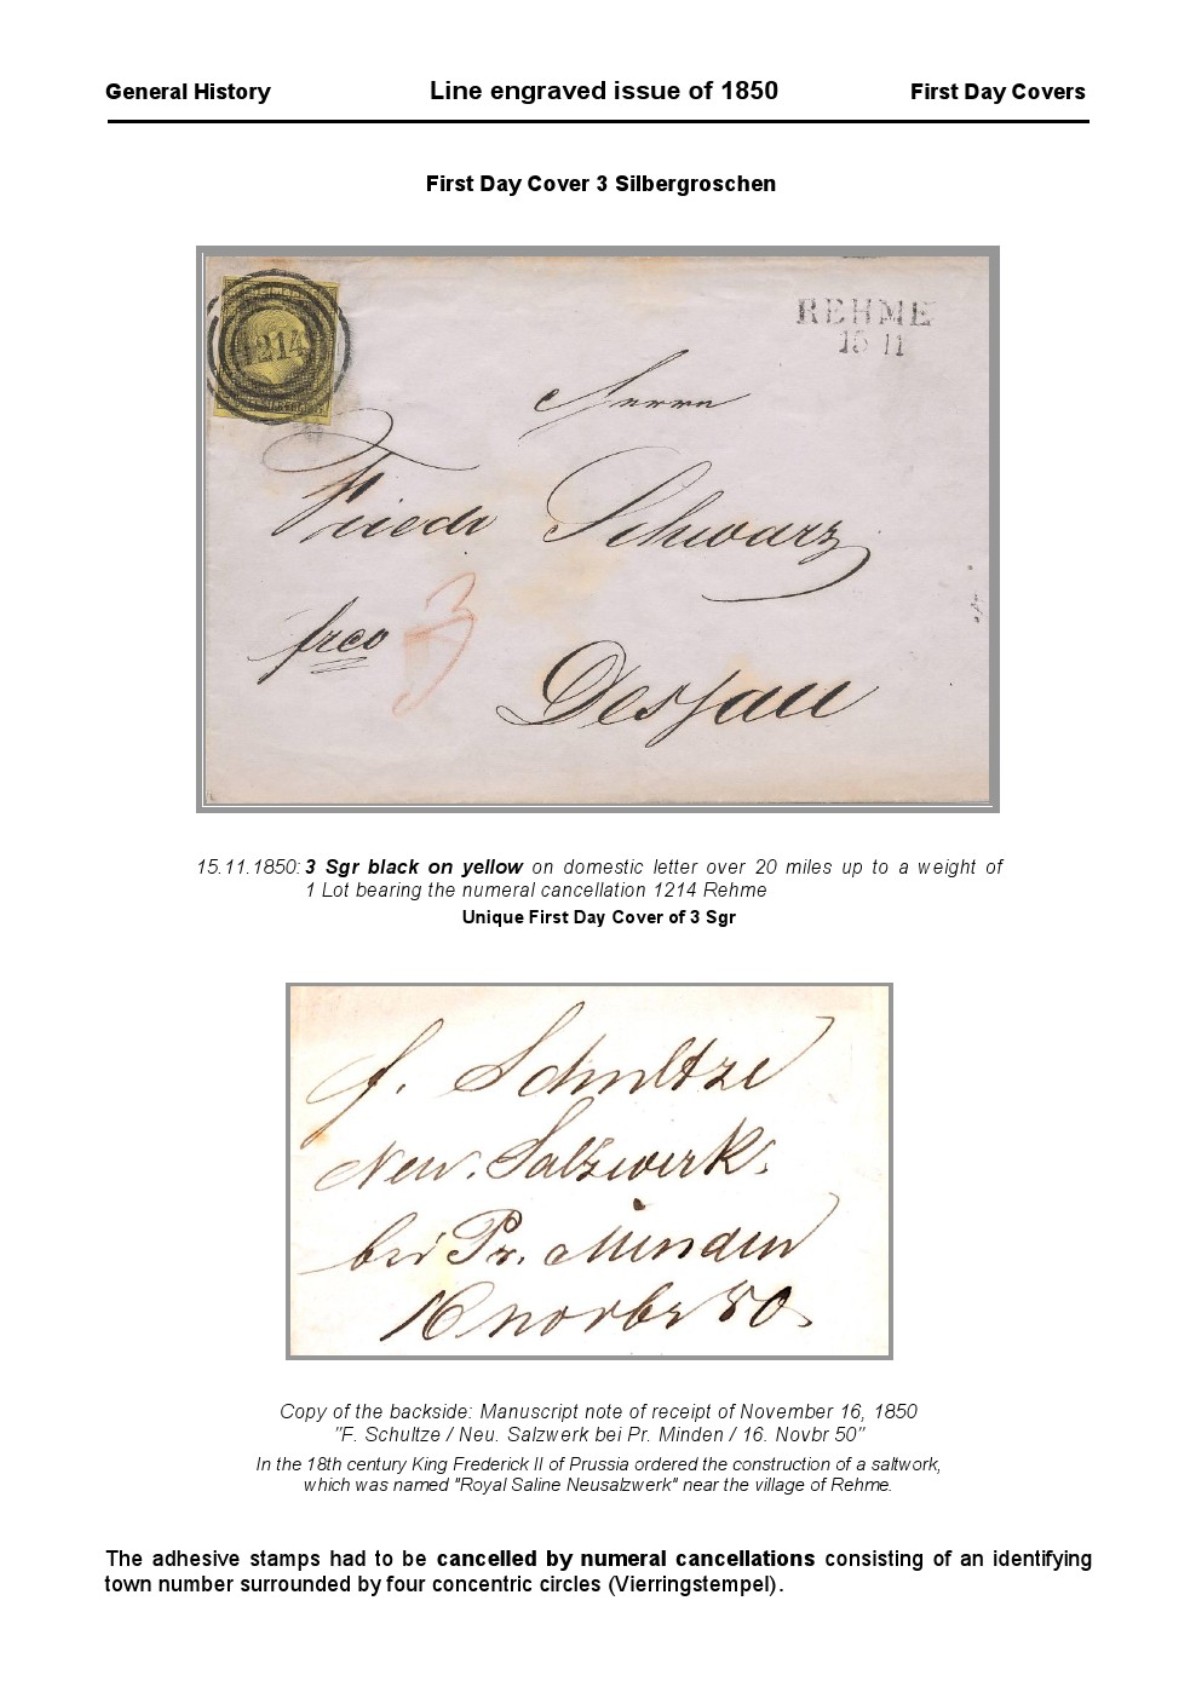 General History Line engraved issue of 1850 First Day Covers
First Day Cover 3 Silbergroschen
1214
REHME
15 11
Herrn
Friedr Schwarz
frco 3
Dessau
15.11.1850: 3 Sgr black on yellow on domestic letter over 20 miles up to a weight of
1 Lot bearing the numeral cancellation 1214 Rehme
Unique First Day Cover of 3 Sgr
f. Schultze
Neu. Salzwerk
bei Pr. Minden
16 Novbr 50
Copy of the backside: Manuscript note of receipt of November 16, 1850
"F. Schultze / Neu. Salzwerk bei Pr. Minden / 16. Novbr 50"
In the 18th century King Frederick II of Prussia ordered the construction of a saltwork,
which was named "Royal Saline Neusalzwerk" near the village of Rehme.
The adhesive stamps had to be cancelled by numeral cancellations consisting of an identifying
town number surrounded by four concentric circles (Vierringstempel).